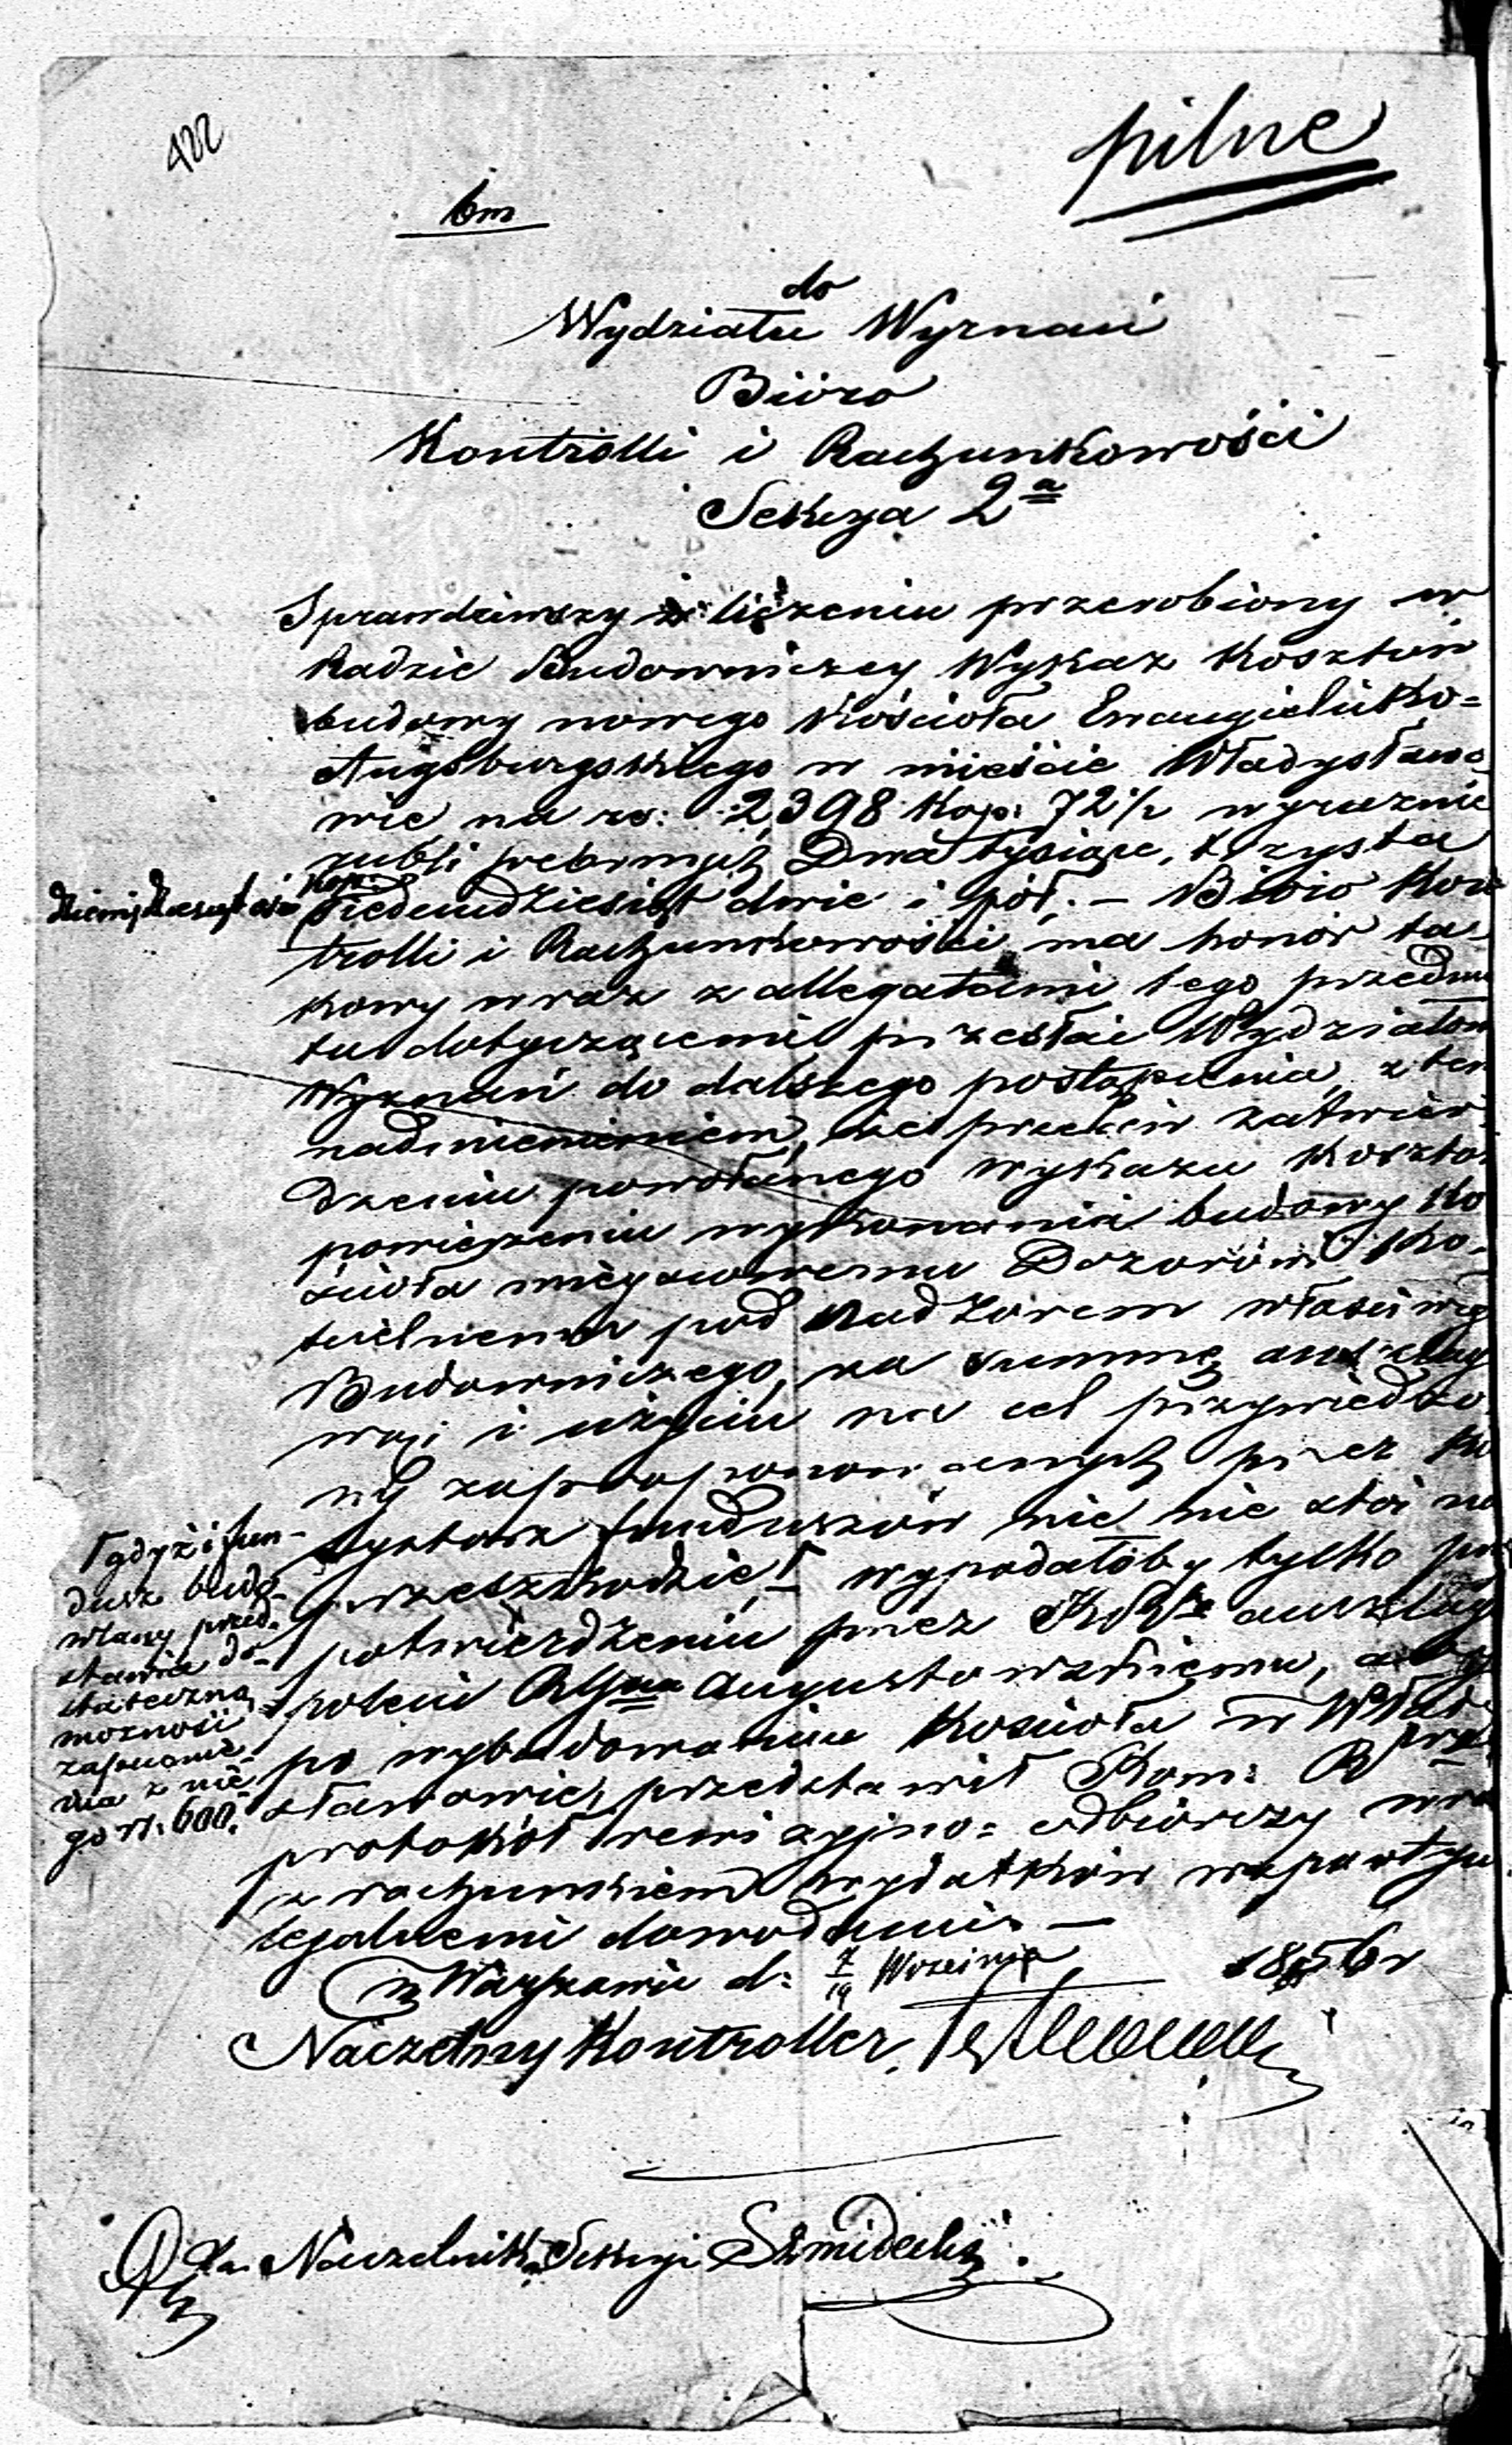 422
pilne
do
Wydziału Wyznań
Biúro
Kontrolli i Rachunkowości
Sekcya 2a
Sprawdziwszy w liczeniu przerobiony w
Radzie Budowniczey Wykaz Kosztów
budowy nowego Kościoła Ewangielicko=
Augsburgskiego w mieście Władysławo
wie na rs: 2,398 kop: 72½ wyraznie
rubli srebrnych Dwa tysiące, trzysta
dziewięćdziesiąt ośm kop: siedmdziesiąt dwie i pół. – Biúro Kon
trolli i Rachunkowości ma honor ta-
kowy wraz z allegatami tego przedmio
tu dotyczącemi przesłać Wydziałowi
Wyznań do dalszego postąpienia, z tem
nadmienieniem, że przeciw zatwier
dzeniu powołanego wykazu Kosztów
powierzeniu wykonania budowy Ko
ścioła mieyscowemu Dozorowi Ko-
ścielnemu pod Nadzorem właściweg
Budowniczego, na summę anszlag
wą i użyciu na cel przywiedzio
ny zaproponowanych przez Ko
funduszów nic nie stoi na
przeszkodzie, Γ wypadałoby tylko po
potwierdzeniu przez anszlagu
polecić Augustowskiemu, aby
po wybudowaniu Kościoła w Włady
sławowie, przedstawił Kom: R prz
protokół rewizyjno=odbiorczy wra
z rachunkiem wydatków wspartym
legalnemi dowodami. –
Γ gdyż i fun-
dusz budo-
wlany przed-
stawia do-
stateczną
możność
zapomo-
go rs. 600.
w Warszawie d: 7/19 Września 1856 r
Naczelny Kontroller,
Za Naczelnika Sekcyi Szmidecki